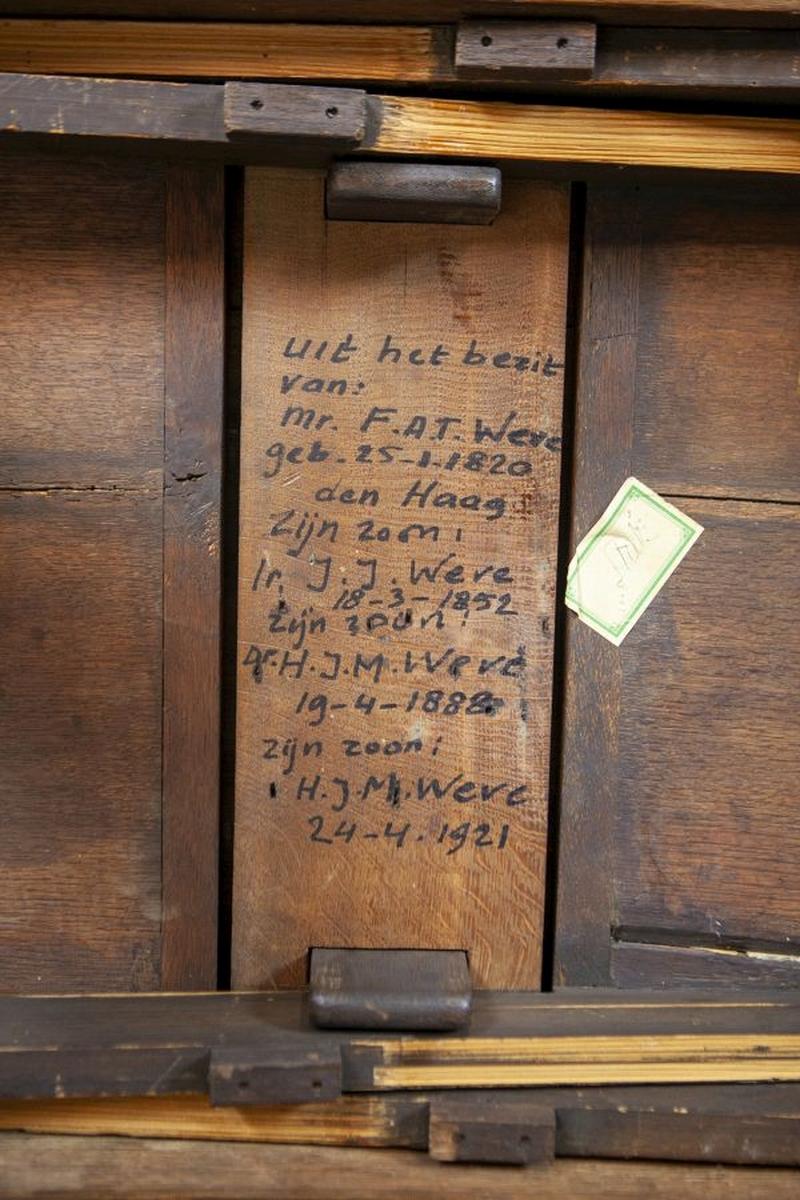 Uit het bezit
van:
Mr. F.A.T. Weve
geb. 25-1-1820
den Haag
Zijn zoon:
Ir. J.J. Weve
18-3-1852
Zijn zoon:
Dr. H.J.M. Weve
19-4-1888
zijn zoon:
H.J.M. Weve
24-4-1921